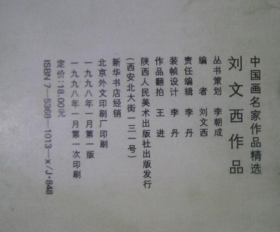 中国画名家作品精选
刘文西作品
丛书策划 李朝成
编者 刘文西
责任编辑 李丹
装帧设计 李丹
作品翻拍 王进
陕西人民美术出版社出版发行
(西安北大街一三一号)
新华书店经销
北京外文印刷厂印刷
一九九八年一月第一版
一九九八年一月第一次印刷
定价:18.00元
ISBN 7-5368-1013-x/J·848